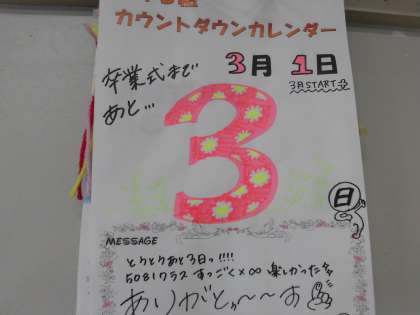 カウントダウンカレンダー
3月 1日
3月START☆
卒業式まで
あと…
3
日
MESSAGE
とうとうあと3日っ!!!!
5081クラス すっごく×∞ 楽しかった
ありがとぉ〜〜お